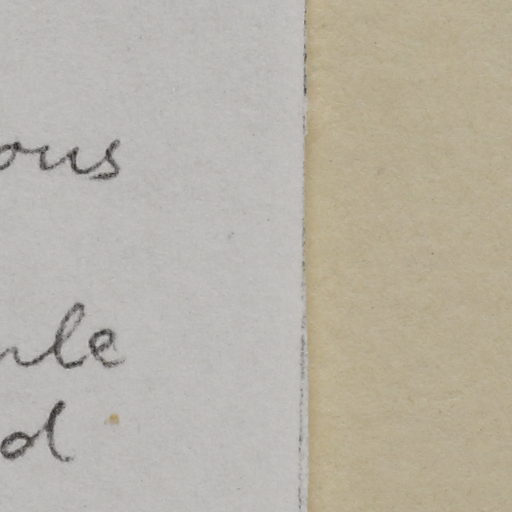 ous
le
d